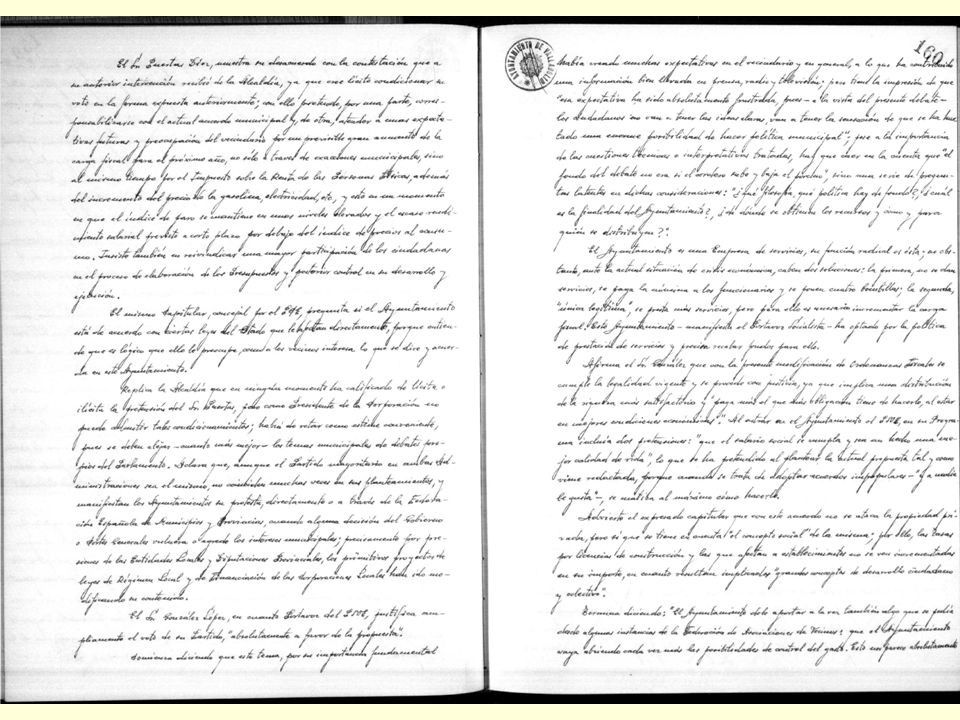 El Sr. Puertas Díez, muestra su desacuerdo con la contestación que a
su anterior intervención recibió de la Alcaldía, ya que cree lícito condicionar su
voto en la forma expuesta anteriormente; con ello pretende, por una parte, corres-
ponsabilizarse con el actual acuerdo municipal y, de otra, atender a unas expecta-
tivas futuras y preocupación del vecindario por un previsible gran aumento de la
carga fiscal para el próximo año, no sólo a través de exacciones municipales, sino
al mismo tiempo por el Impuesto sobre la Renta de las Personas Físicas, además
del incremento del precio de la gasolina, electricidad, etc, y esto en un momento
en que el índice de paro se mantiene en unos niveles elevados y el escaso rendi-
miento salarial previsto a corto plazo por debajo del índice de precios al consu-
mo. Insiste también en reivindicar una mayor participación de los ciudadanos
en el proceso de elaboración de los Presupuestos y posterior control en su desarrollo y
ejecución.
El mismo Capitular, concejal por el PCE, pregunta si el Ayuntamiento
está de acuerdo con ciertas leyes del Estado que le afectan directamente, porque entien-
de que es lógico que ello le preocupe, como a los vecinos interesa lo que se dice y acuer-
da en este Ayuntamiento.
Replica la Alcaldía que en ningún momento ha calificado de lícita o
ilícita la pretensión del Sr. Puertas, pero como Presidente de la Corporación no
puede admitir tales condicionamientos; habrá de votar como estime conveniente,
pues se deben alejar -cuanto más mejor- los temas municipales de debates pro-
pios del Parlamento. Aclara que, aunque el Partido mayoritario en ambas Ad-
ministraciones sea el mismo, no coinciden muchas veces en sus planteamientos, y
manifiestan los Ayuntamientos su protesta, directamente o a través de la Federa-
ción Española de Municipios y Provincias, cuando alguna decisión del Gobierno
o Cortes Generales vulnera o agrede los intereses municipales; precisamente por pre-
siones de las Entidades Locales y Diputaciones Provinciales, los primitivos proyectos de
leyes de Régimen Local y de Financiación de las Corporaciones Locales han ido mo-
dificando su contenido.
El Sr. González López, en cuanto Portavoz del PSOE, justifica am-
pliamente el voto de su Partido, "absolutamente a favor de la propuesta".
Comienza diciendo que este tema, por su importancia fundamental
AYUNTAMIENTO DE
160
había creado muchas expectativas en el vecindario y en general, a lo que ha contribuido
una información bien llevada en prensa, radio y televisión; pero tiene la impresión de que
"esa expectativa ha sido absolutamente frustrada, pues -a la vista del presente debate-
los ciudadanos no van a tener las ideas claras, van a tener la sensación de que se ha hur-
tado una enorme posibilidad de hacer política municipal"; pese a la importancia
de las cuestiones técnicas o interpretativas tratadas, hay que caer en la cuenta que "el
fondo del debate no era si el cordero sube y baja el pienso", sino una serie de pregun-
tas latentes en dichas consideraciones: "¿qué filosofía, qué política hay de fondo?, ¿cuál
es la finalidad del Ayuntamiento?, ¿de dónde se obtienen los recursos y cómo y para
quién se distribuyen?".
El Ayuntamiento es una Empresa de servicios, su función radical es ésta; no obs-
tante, ante la actual situación de crisis económica, caben dos soluciones: la primera, no se dan
servicios, se paga la nómina a los funcionarios y se ponen cuatro bombillas; la segunda,
"única legítima", se presta más servicios, pero para ello es necesario incrementar la carga
fiscal. Este Ayuntamiento -manifiesta el Portavoz Socialista- ha optado por la política
de prestación de servicios y precisa recabar fondos para ello.
Afirma el Sr. González que con la presente modificación de Ordenanzas Fiscales se
cumple la legalidad vigente y se procede con justicia, ya que implica una distribución
de la riqueza más satisfactoria y "paga más el que más obligación tiene de hacerlo, al estar
en mejores condiciones económicas". Al entrar en el Ayuntamiento el PSOE, en su Progra-
ma incluía dos pretensiones: "que el salario social se cumpla y sea un hecho una me-
jor calidad de vida", lo que se ha pretendido al plantear la actual propuesta tal y como
viene redactada, porque cuando se trata de adoptar acuerdos impopulares -"y a nadie
le gusta"-, se matiza al máximo cómo hacerlo.
Advierte el expresado capitular que con este acuerdo no se ataca la propiedad pri-
vada, pero sí que se tiene en cuenta "el concepto social" de la misma; por ello, las tasas
por licencias de construcción y las que afectan a establecimientos no se ven incrementadas
en su importe, en cuanto resultan implicados "grandes conceptos de desarrollo ciudadano
y colectivo".
Termina diciendo: "El Ayuntamiento debe aportar a la vez también algo que se pedía
desde algunas instancias de la Federación de Asociaciones de Vecinos: que el Ayuntamiento
vaya abriendo cada vez más las posibilidades de control del gasto. Esto nos parece absolutamente